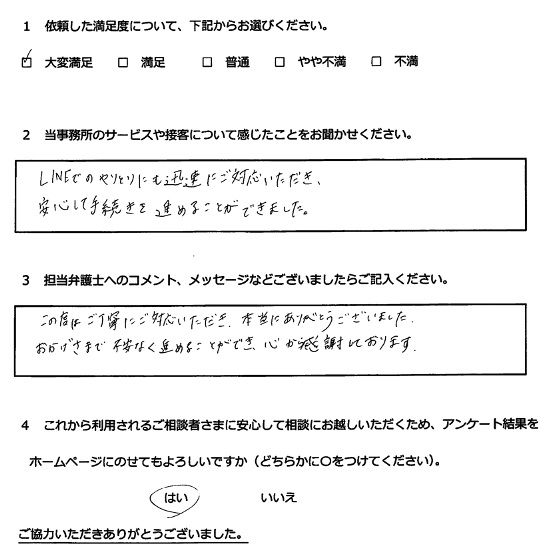 1 依頼した満足度について、下記からお選びください。
☑ 大変満足 □ 満足 □ 普通 □ やや不満 □ 不満
2 当事務所のサービスや接客について感じたことをお聞かせください。
LINEでのやりとりにも迅速にご対応いただき、
安心して手続きを進めることができました。
3 担当弁護士へのコメント、メッセージなどございましたらご記入ください。
この度はご丁寧にご対応いただき、本当にありがとうございました。
おかげさまで不安なく進めることができ、心から感謝しております。
4 これから利用されるご相談者さまに安心して相談にお越しいただくため、アンケート結果を
ホームページにのせてもよろしいですか（どちらかに○をつけてください）。
はい いいえ
ご協力いただきありがとうございました。